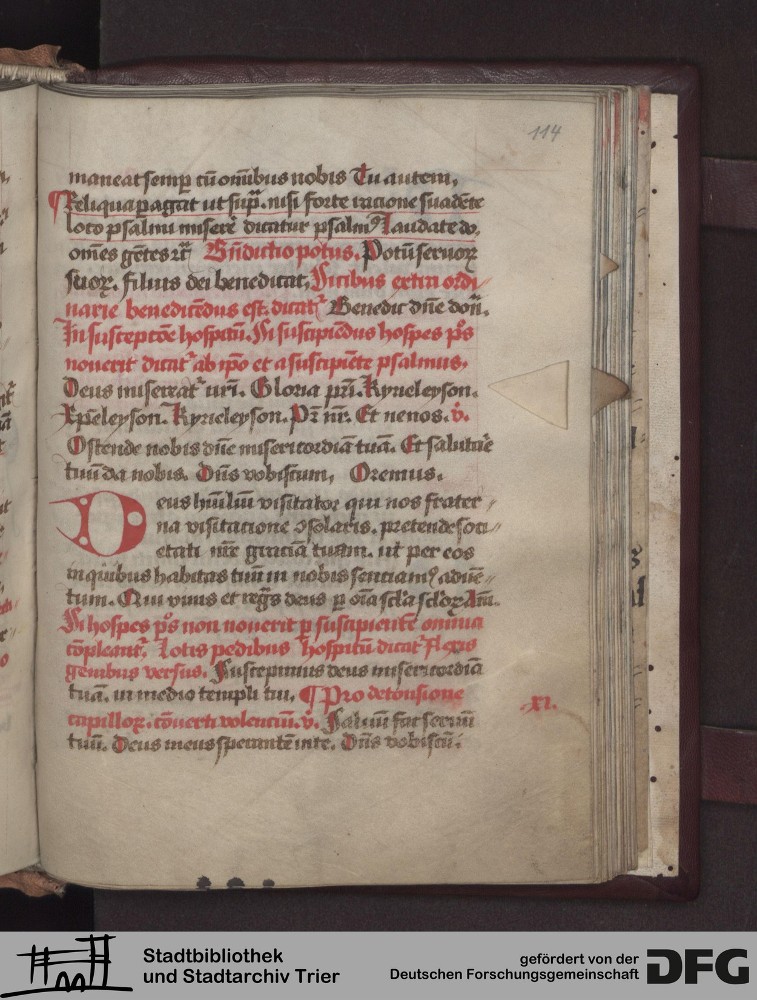 114
maneat semp cū om̄ibus nobis Tu autem,
¶ Reliqua pagāt ut sup̄. nisi forte racione suadēte
loco psalmi miserē dicatur psalmꝰ Laudate do.
om̄es gētes
Bn̄dictio potus. Potū seruoꝝ
suoꝝ. filius dei benedicat, Si cibus extra ordi
narie benedicēdus est. dicatʳ Benedic dn̄e
In susceptōe hospitū. Si suscipiēdus hospes p̄s
nouerit dicatʳ ab ip̄o et a suscipiēte psalmus,
Deus misereatʳ nr̄i. Gloria pr̄i. Kyrieleyson.
Xp̄eleyson. Kyrieleyson. Pr̄ nr̄. Et ne nos. v.
Ostende nobis dn̄e misericordiā tuā. Et salutāe
tuū da nobis. Dn̄s vobiscum, Oremus.
Deus hūiliū visitator qui nos frater
na visitacione ↄsolaris. pretende soci
etati nr̄e graciā tuam. ut per eos
in quibus habitas tuū in nobis senciamꝰ aduē
tum. Qui viuis et regn̄s deus p oīa scl̄a scl̄oꝝ Am̄.
Si hospes p̄s non nouerit p suscipiente omnia
cōpleantʳ. Lotis pedibus hospitū dicatʳ flexis
genibus versus. Suscepimus deus misericordiā
tuā. in medio templi tui. ¶ Pro detonsione
capilloꝝ. cōuerti volenciū. v. Saluū fac seruū
.xi.
tuū. Deus meus sperantē in te. Dn̄s vobiscū.
Stadtbibliothek
und Stadtarchiv Trier
gefördert von der
Deutschen Forschungsgemeinschaft
DFG